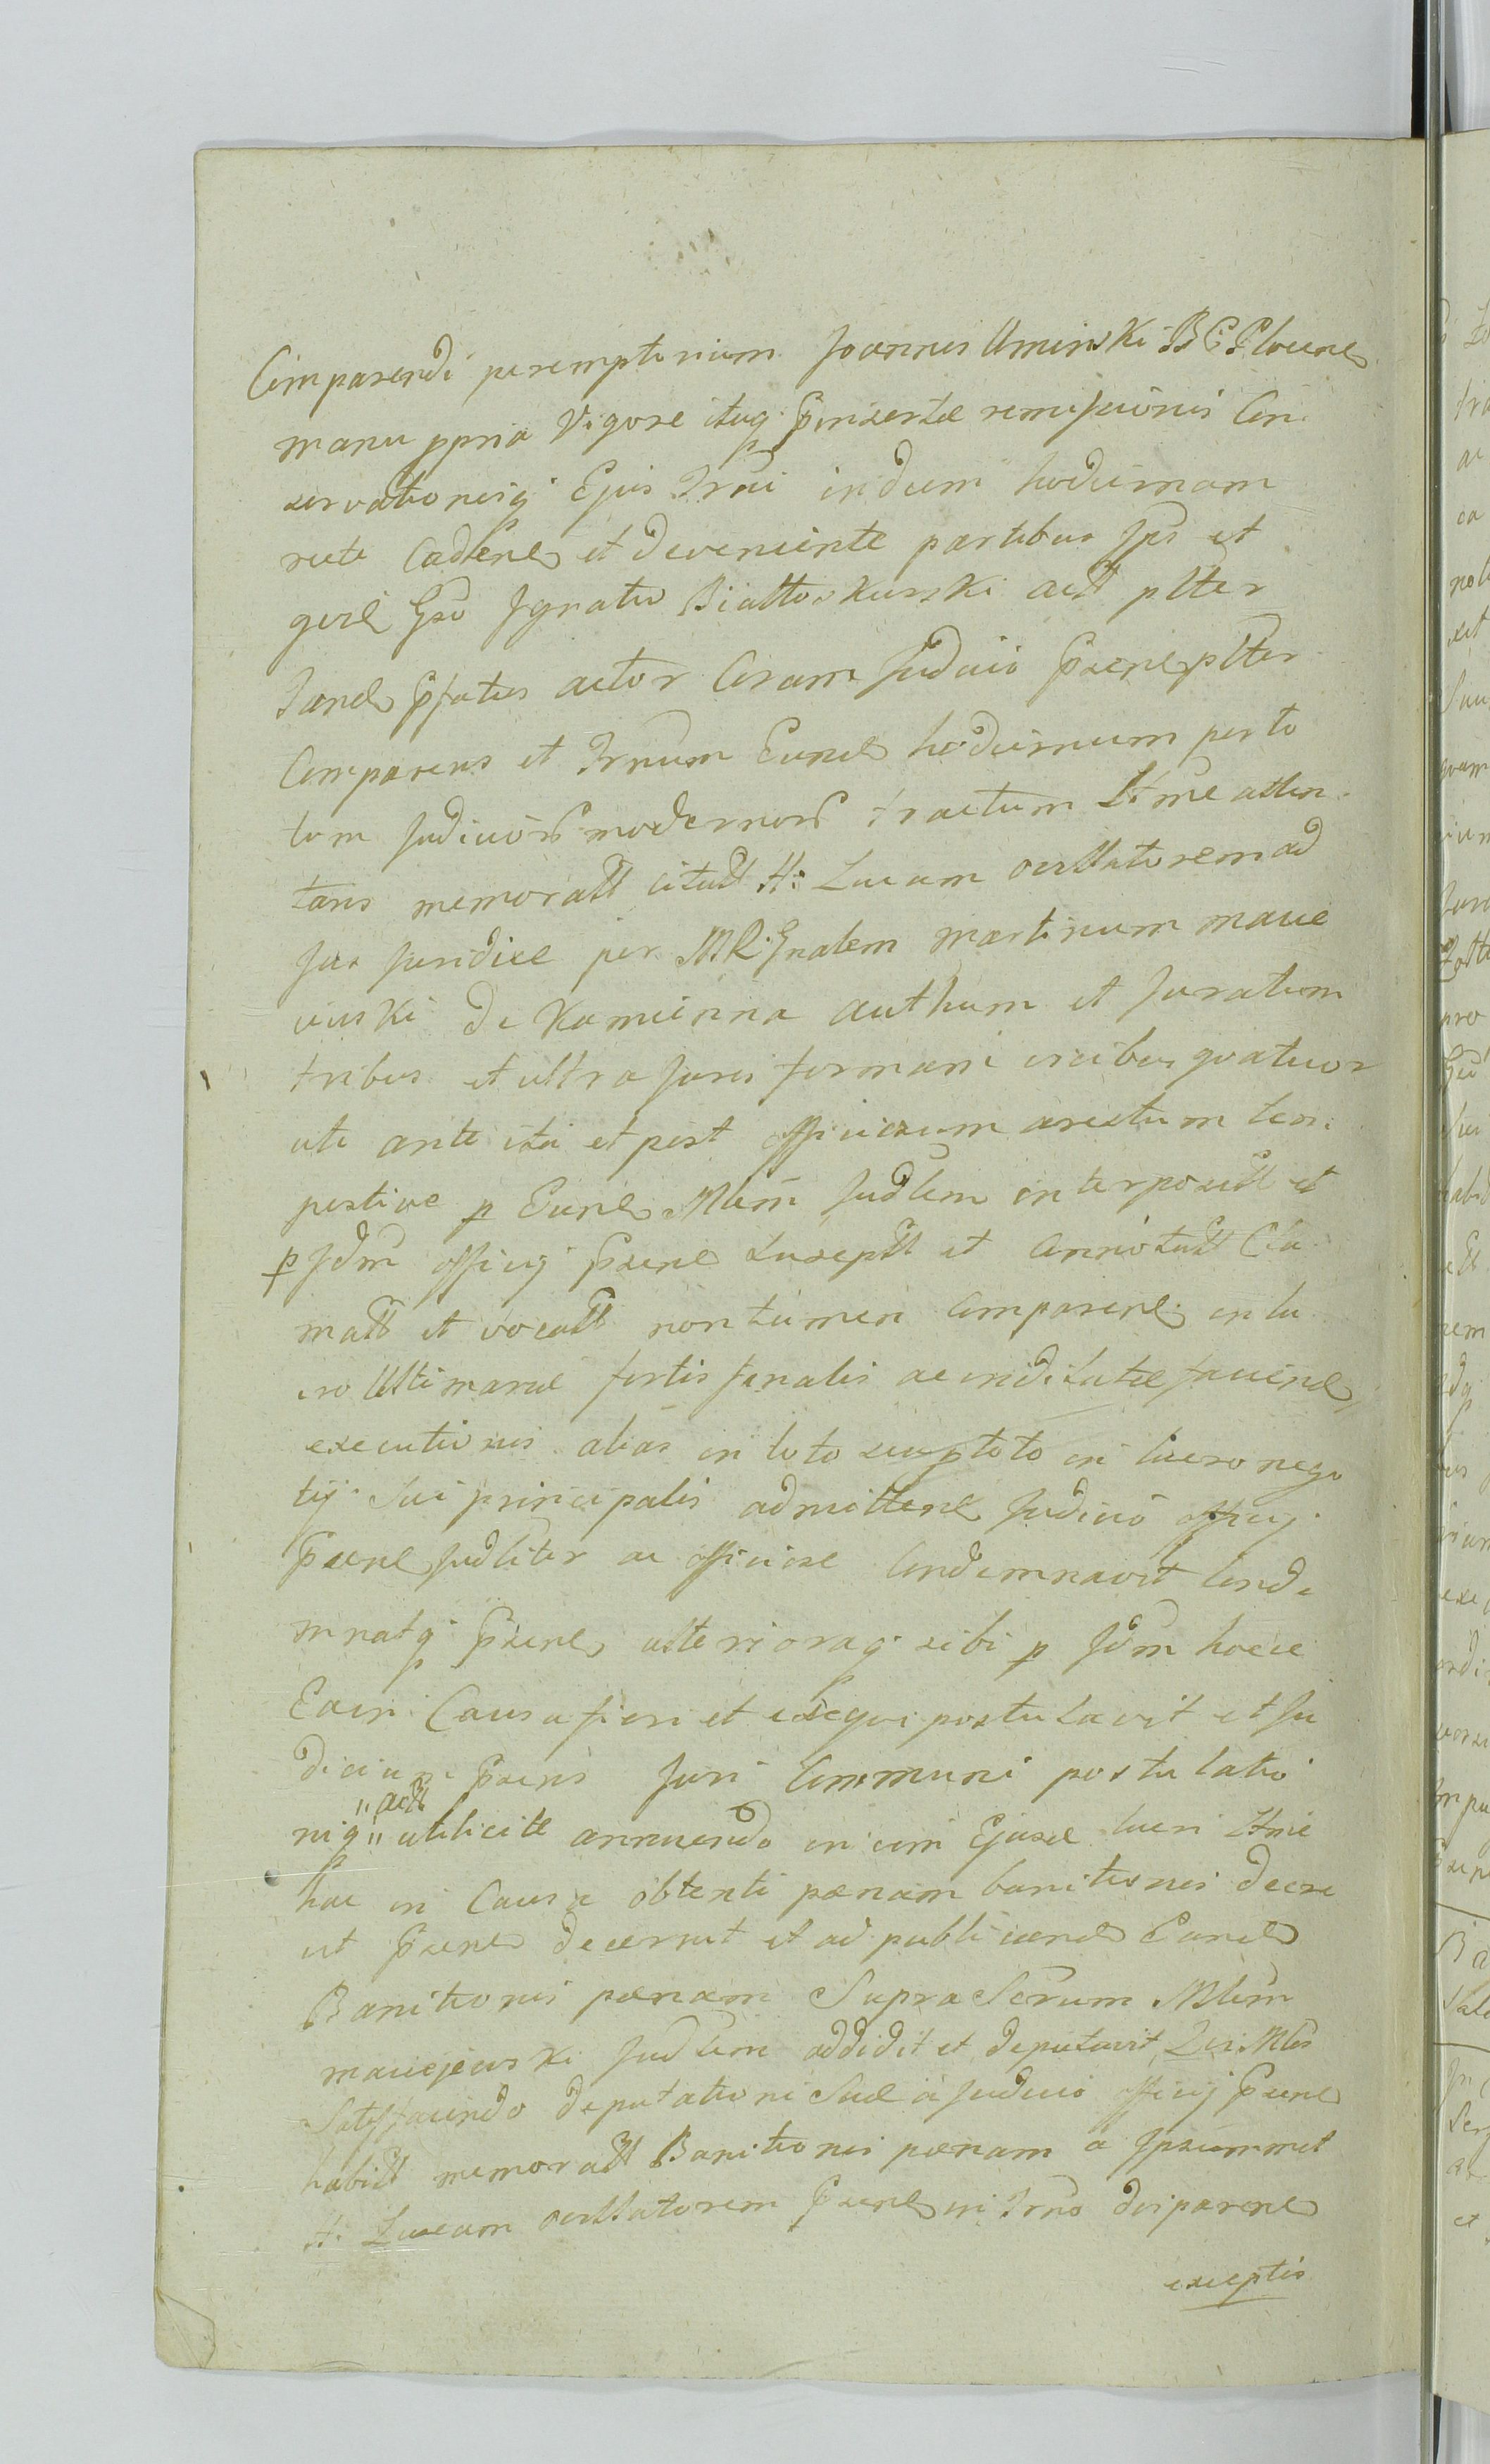 Comparendi peremptorium Joannes Uminski B C P Locene
manu ppria Vigore itaq Pinsertæ remissionis Con
servationisq Ejus Trni in diem hodiernam
recte Cadene et deveniente partibus Ips et
gvæ Gso Ignatio Białłoskurski actt plter
Jane Pfatus actor Coram Judicio Psene plter
Comparens et Trnum Eune hodiernum porto
tom Judiciors modernors tractum Ltme atten
tans memoratt citatt H: Lucam oculatorem ad
Jus Juridice per MR: Gnalem martinum macie
iewski de Kamienna authum et Juratum
tribus et ultra Juris formam vicibus quatuor
uti ante ita et post officiosum arestum tem
pestive p Eune Mlem Judlem interpositt et
p Jdm officij Psene susceptt et Connotatt Cla
matt et vocatt non tamen Comparene in lu
cro Ultimariæ fortis finalis ac indilatæ faciene
executionis alias in toto seu p toto in lucro nego
tij Sui principalis admittene Judicio officij
Psene Judliter ac officiose Condemnavit Conde
mnatq Psene ulterioraq sibi p Jdm hocce
Ea in Causa fieri et exeqvi postulavit et Ju
dicium Psens Juri Communi postulatio
niq "actt" utilicite annuendo in vim Ejusce lucri Ltme
hac in Causa obtenti pænam banitionis decre
vit Psene decernit et ad publicane Eane
Banitionis pænam SupraScrum Mlem
maciejewski Judlem addidit et deputavit Qui Mles
Satisfaciendo deputationi Suæ a Judicio officij Psene
habitt memoratt Banitionis pænam a Ipsummet
H: Lucam oculatorem Psene in Trno disparene
exceptis